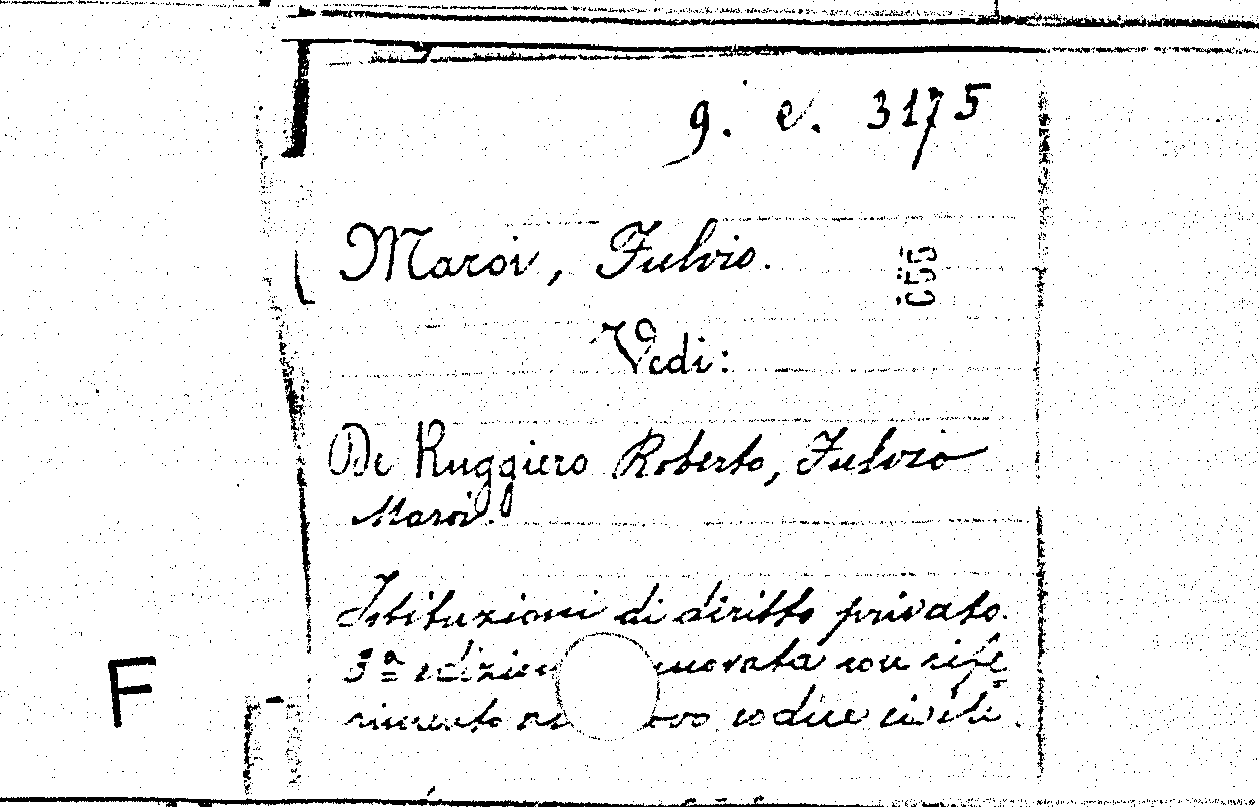 g. e. 3175
Maroi, Fulvio.
C55
Vedi:
De Ruggiero Roberto, Fulvio
Maroi.
Istituzioni di diritto privato.
5ª edizion novata con rife
rimento n ovo codice civile.
F